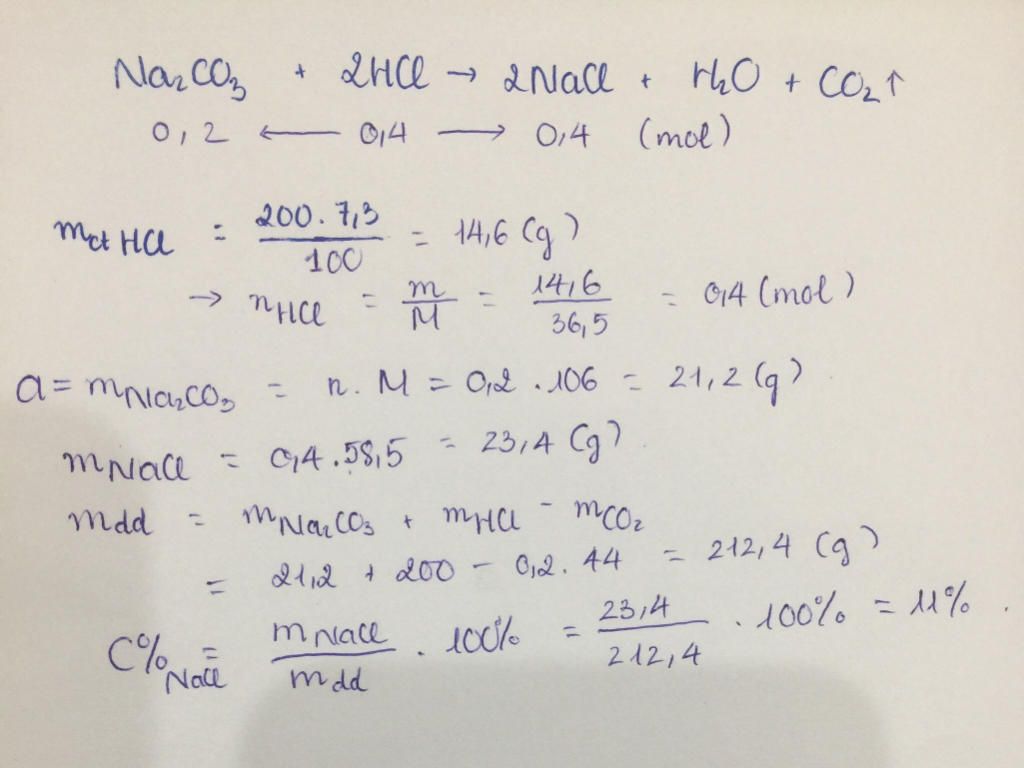 Na₂CO₃ + 2HCl → 2NaCl + H₂O + CO₂↑
0,2 ← 0,4 → 0,4 (mol)
mct HCl = 200.7,3/100 = 14,6 (g)
→ nHCl = m/M = 14,6/36,5 = 0,4 (mol)
a = mNa₂CO₃ = n.M = 0,2.106 = 21,2 (g)
mNaCl = 0,4.58,5 = 23,4 (g)
mdd = mNa₂CO₃ + mHCl - mCO₂
= 21,2 + 200 - 0,2.44 = 212,4 (g)
C%NaCl = mNaCl/mdd . 100% = 23,4/212,4 . 100% = 11% .